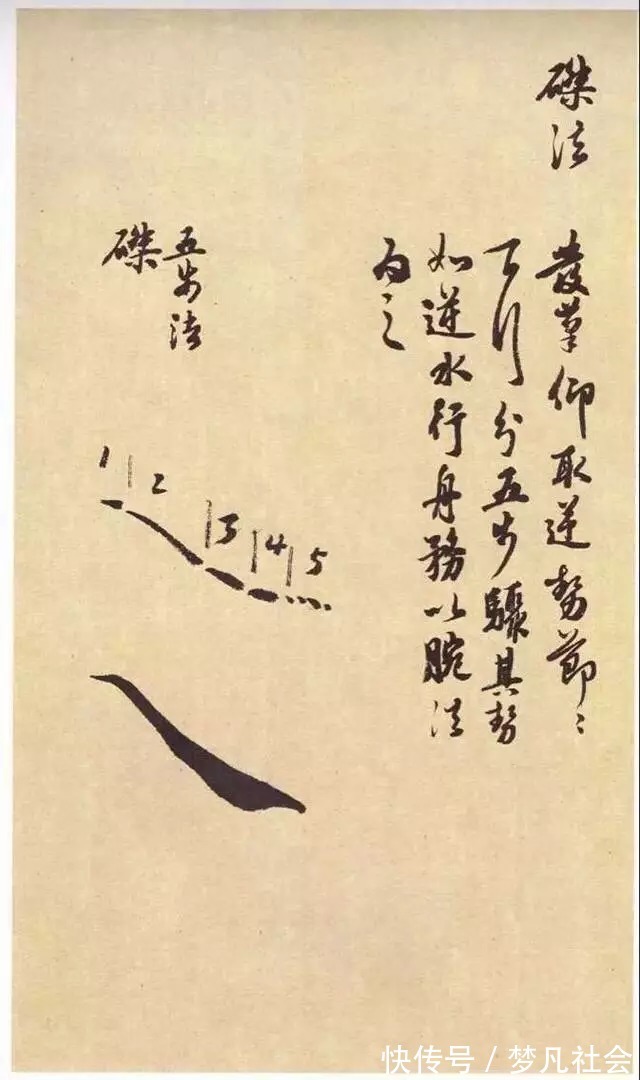 磔法 發筆仰取逆勢節〻
下行分五步驟其勢
如逆水行舟務以腕法
為之
五步法
磔
1 2 3 4 5
快传号 / 梦凡社会